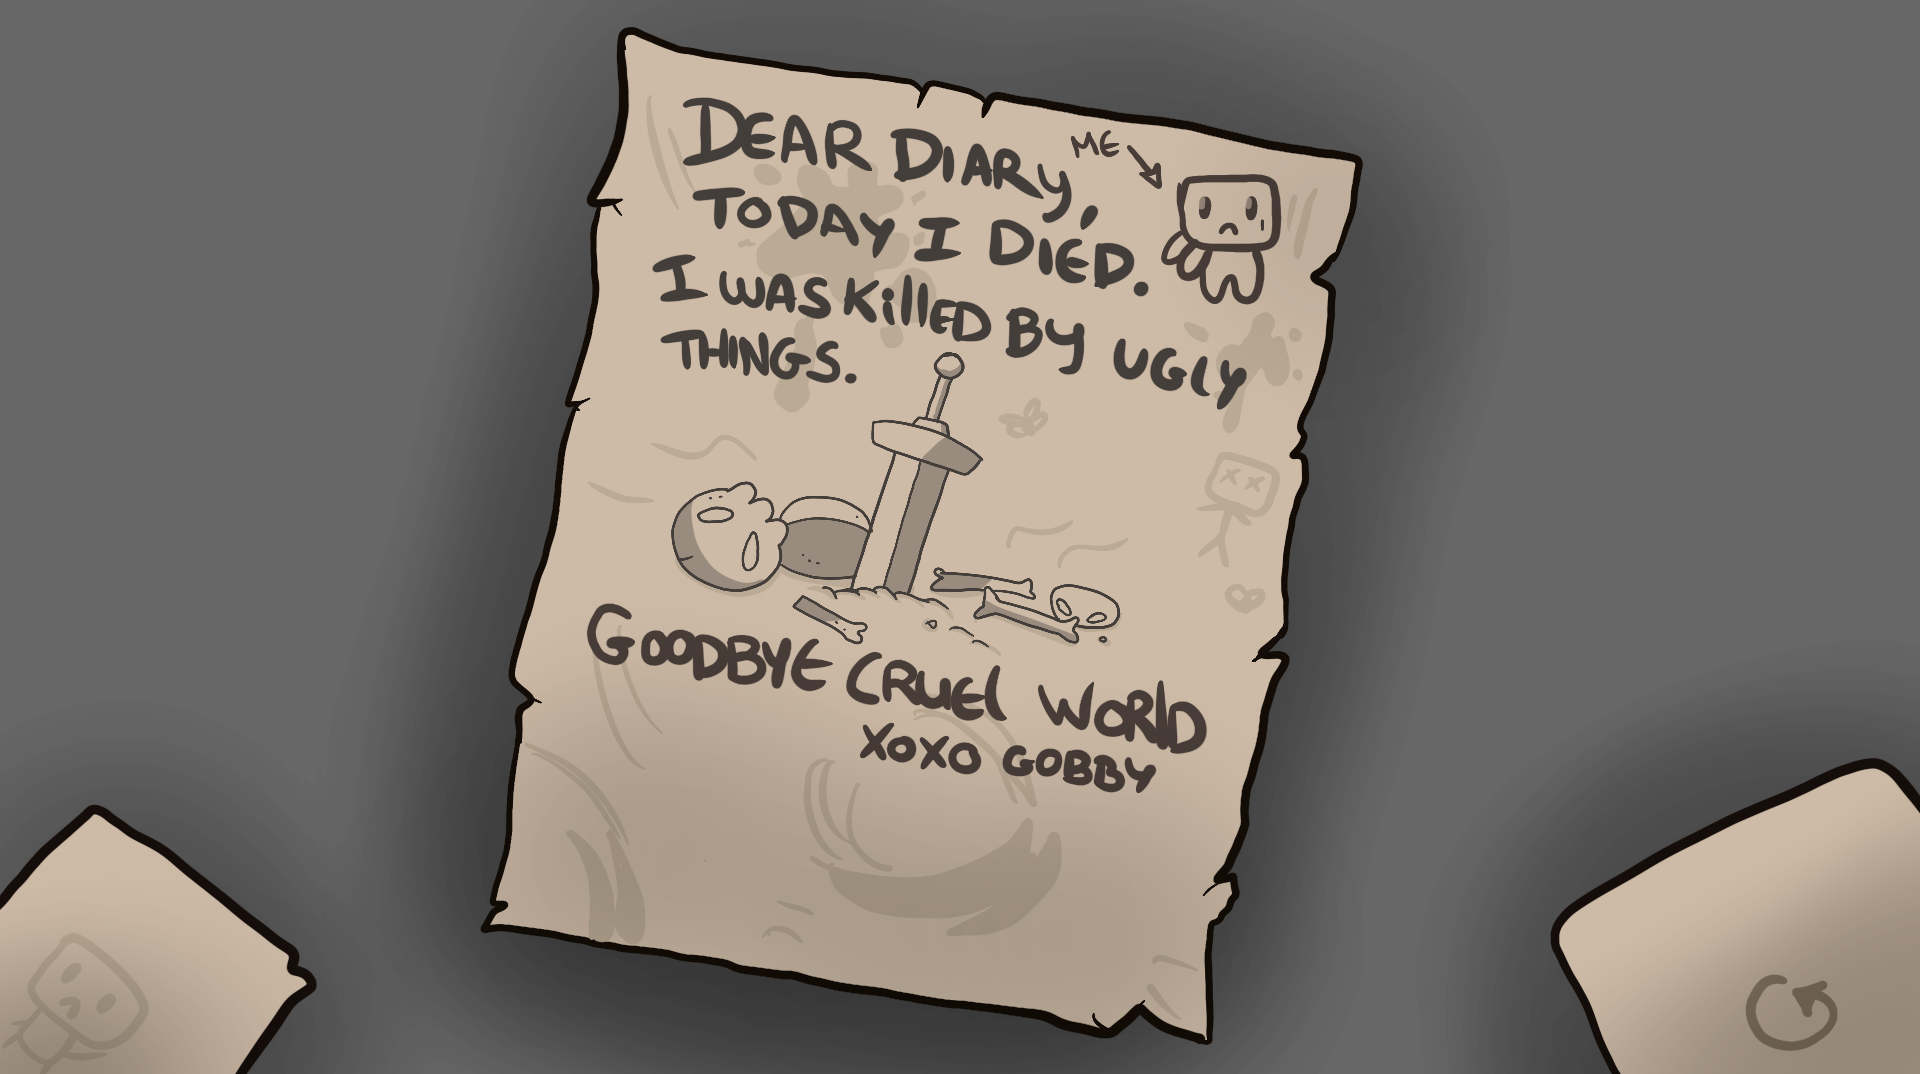 DEAR DIARY,
ME
TODAY I DIED.
I WAS KillED BY UGLY
THINGS.
GOODBYE CRUEl WORlD
XOXO GOBBY